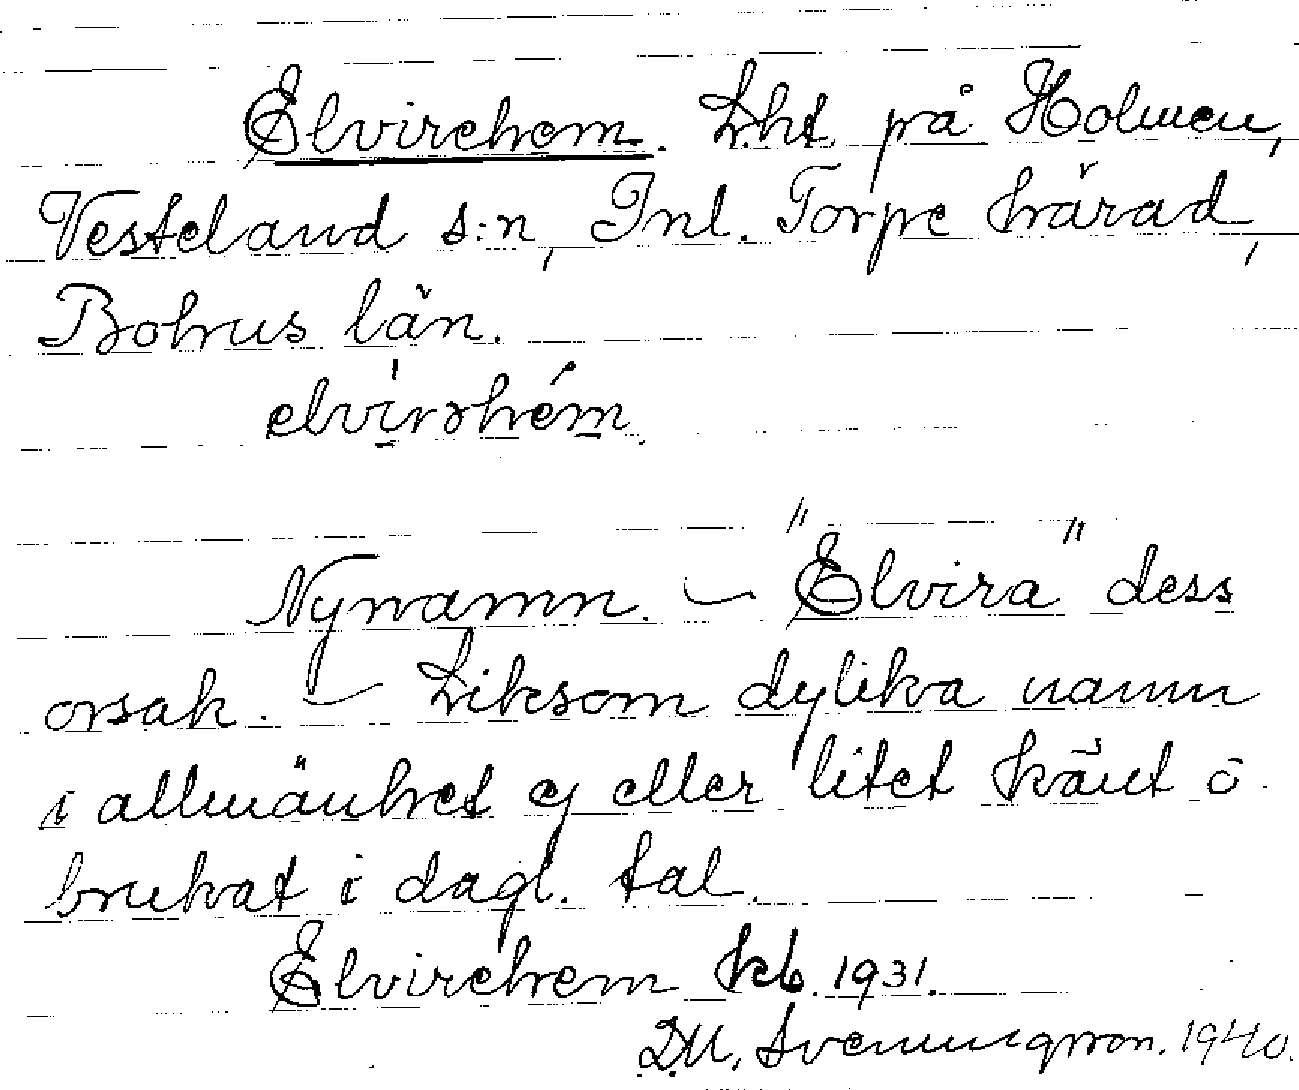 Elvirehem. Lht. på Holmen,
Vesteland s:n, Inl. Torpe härad,
Bohus län.
elvirəhém.
Nynamn. – "Elvira" dess
orsak. – Liksom dylika namn
i allmänhet ej eller litet känt o.
brukat i dagl. tal.
Elvirehem kb. 1931.
D.M. Svenningsson. 1940.